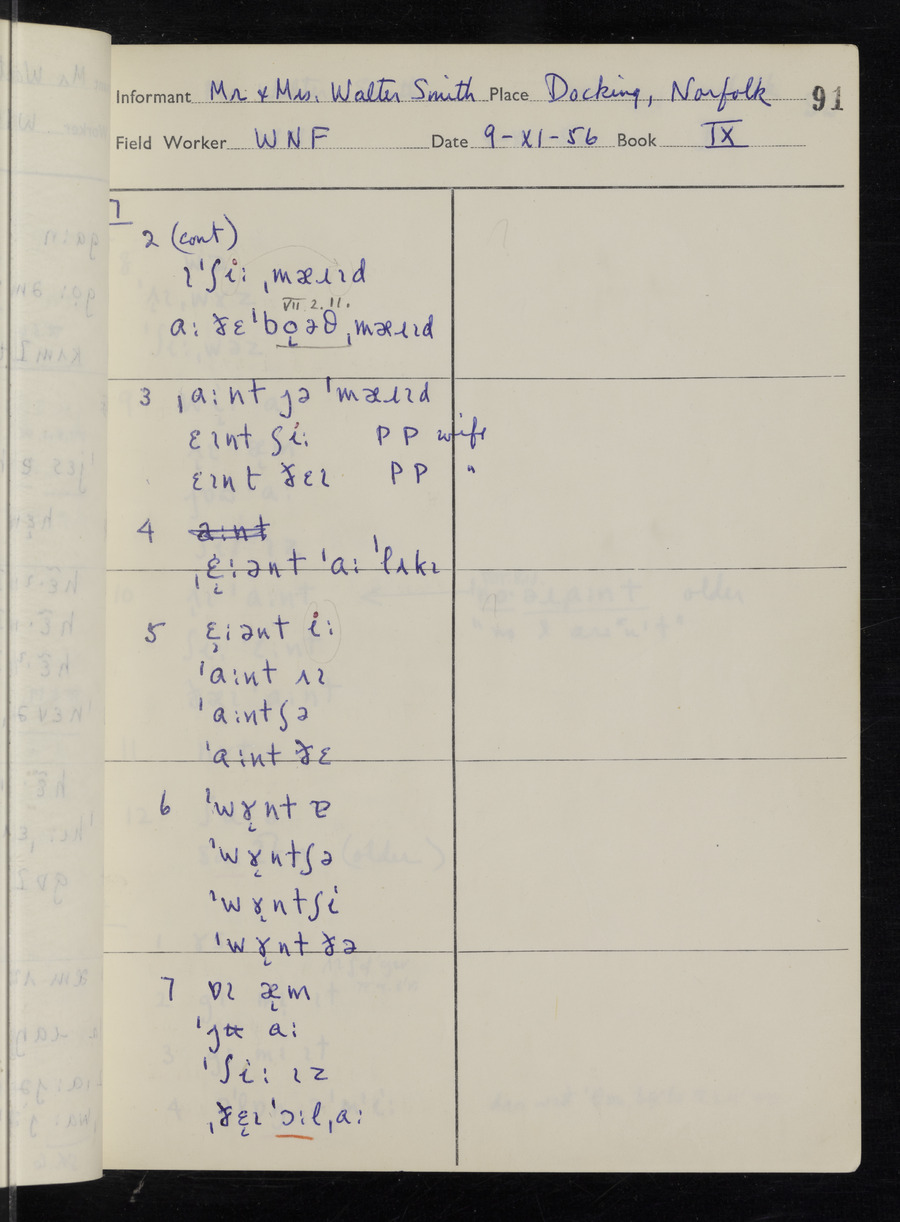 Informant Mr & Mrs. Walter Smith Place Docking, Norfolk 91
Field Worker WNF Date 9-XI-56 Book IX
7
2 (cont)
ɪˈʃi: ˌmæɹɪd
VII 2.11.
a: ðɛˈbo̞əθ ˌmæɹɪd
3 ˌa:nt jə ˈmæɹɪd
ɛɪnt ʃi: PP wife
ɛɪnt ðɛɪ PP "
4 a:nt
ˌɛ̞:ənt ˈa: ˈlʌkɪ
5 ɛ̞:ənt i:
ˈa:nt ʌɪ
ˈa:ntʃə
ˈa:nt ðɛ
6 ˈwɤ̞nt ɐ
ˈwɤ̞ntʃə
ˈwɤ̞ntʃi
ˈwɤ̞nt ðə
7 ɒɪ æ̞m
ˈjʉ a:
ˈʃi: ɪz
ˌðɛ̞ɪˈɔ:lˌa: